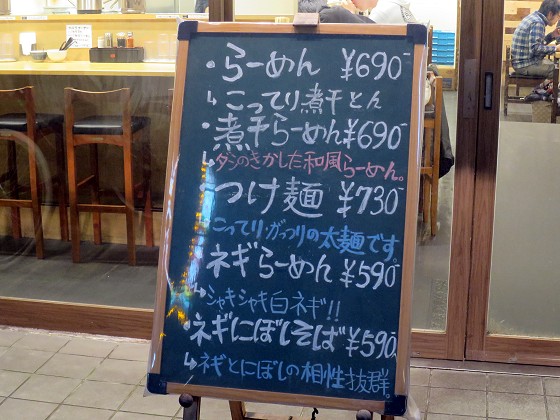 ・らーめん ¥690-
↳こってり煮干とん
・煮干らーめん ¥690-
↳ダシのきかした和風らーめん。
・つけ麺 ¥730-
↳こってり・がっつりの太麺です。
・ネギらーめん ¥590-
↳シャキシャキ白ネギ!!
・ネギにぼしそば ¥590-
↳ネギとにぼしの相性抜群。